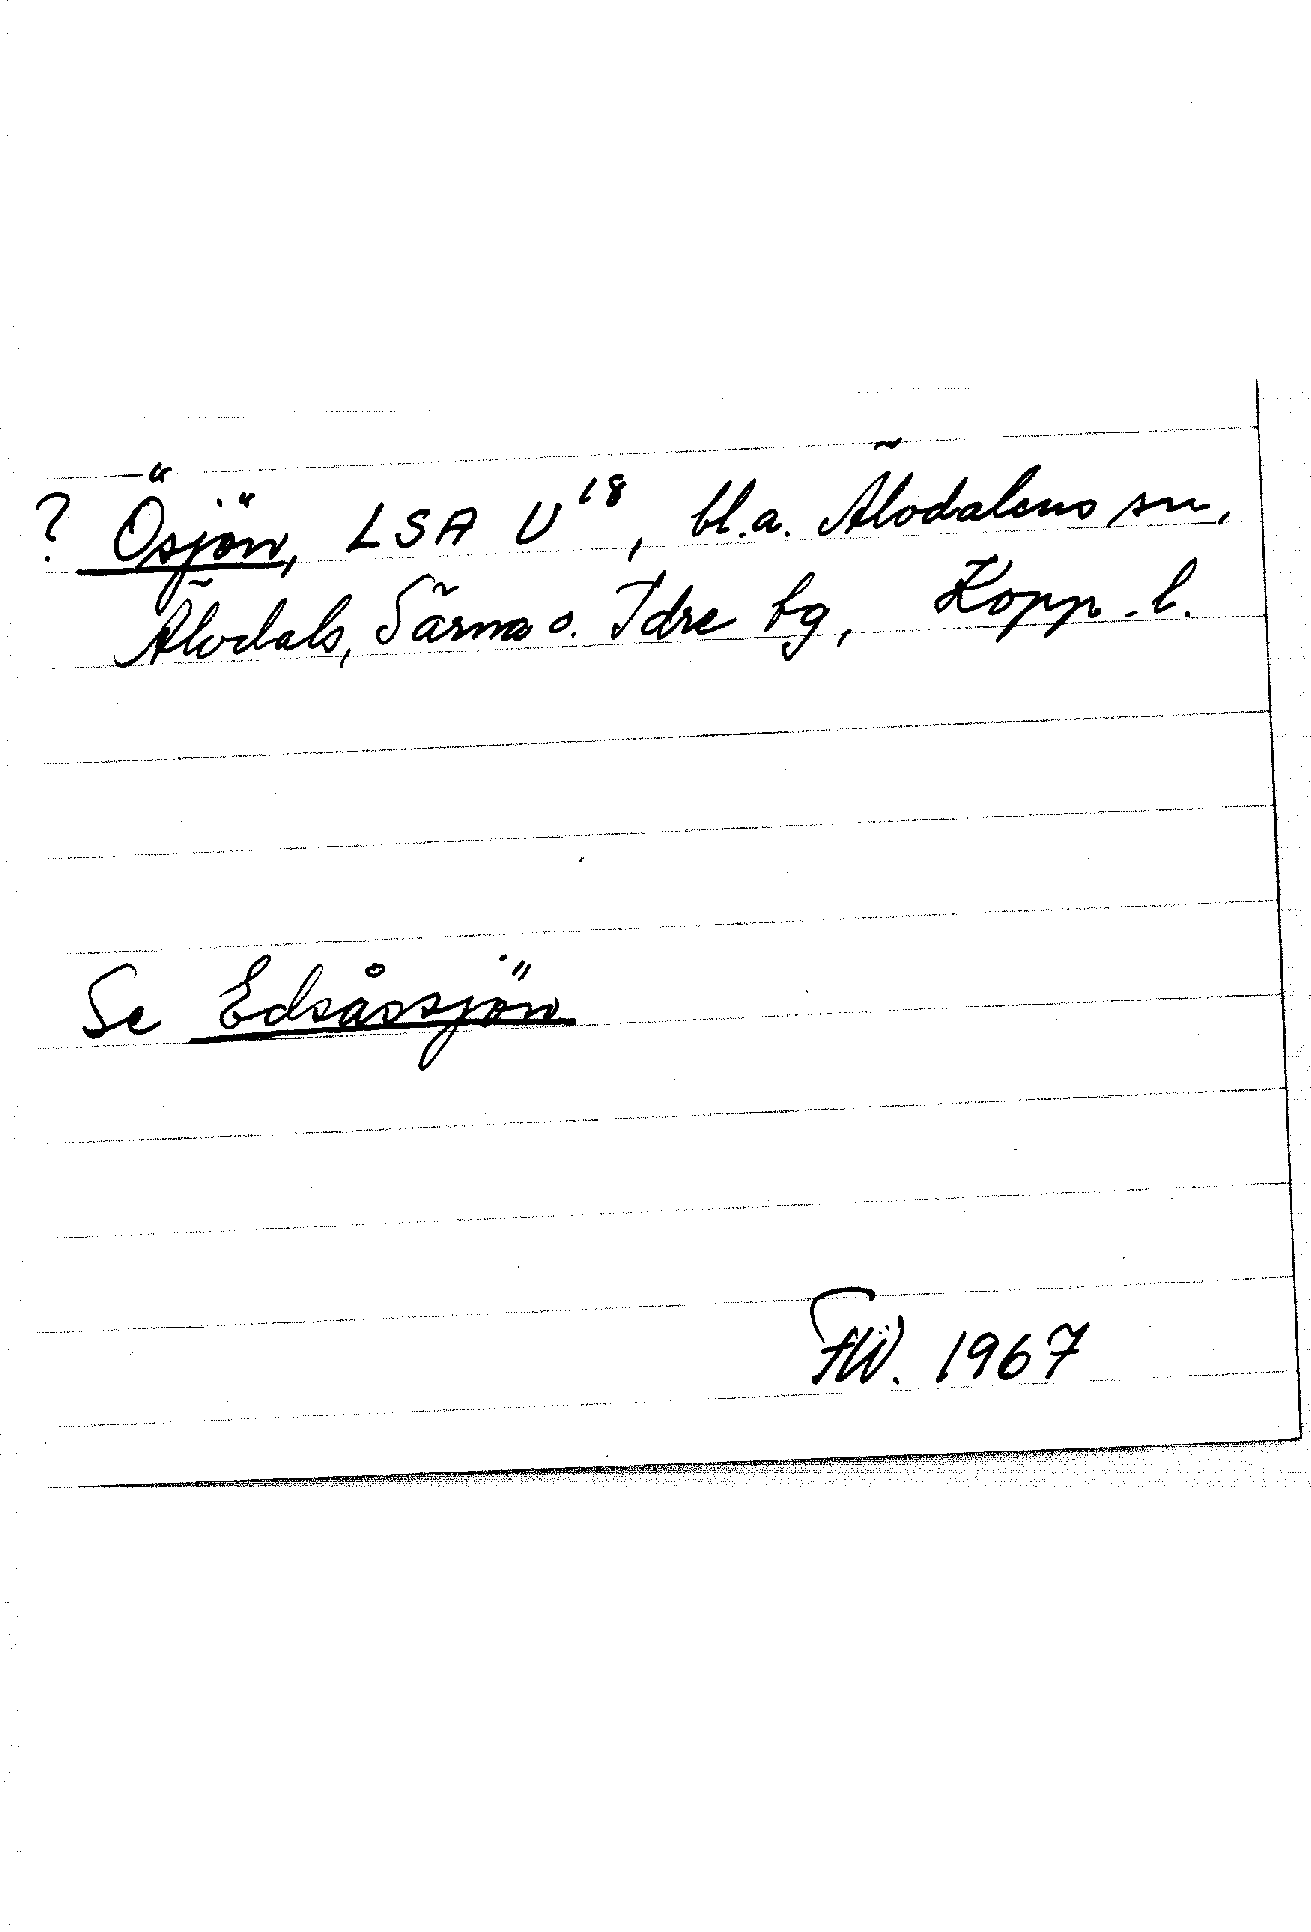 ? Ösjön, LSA U18, bl.a. Älvdalens sn,
Älvdals, Särna o. Idre tg, Kopp. l.
Se Edsåssjön
FW. 1967